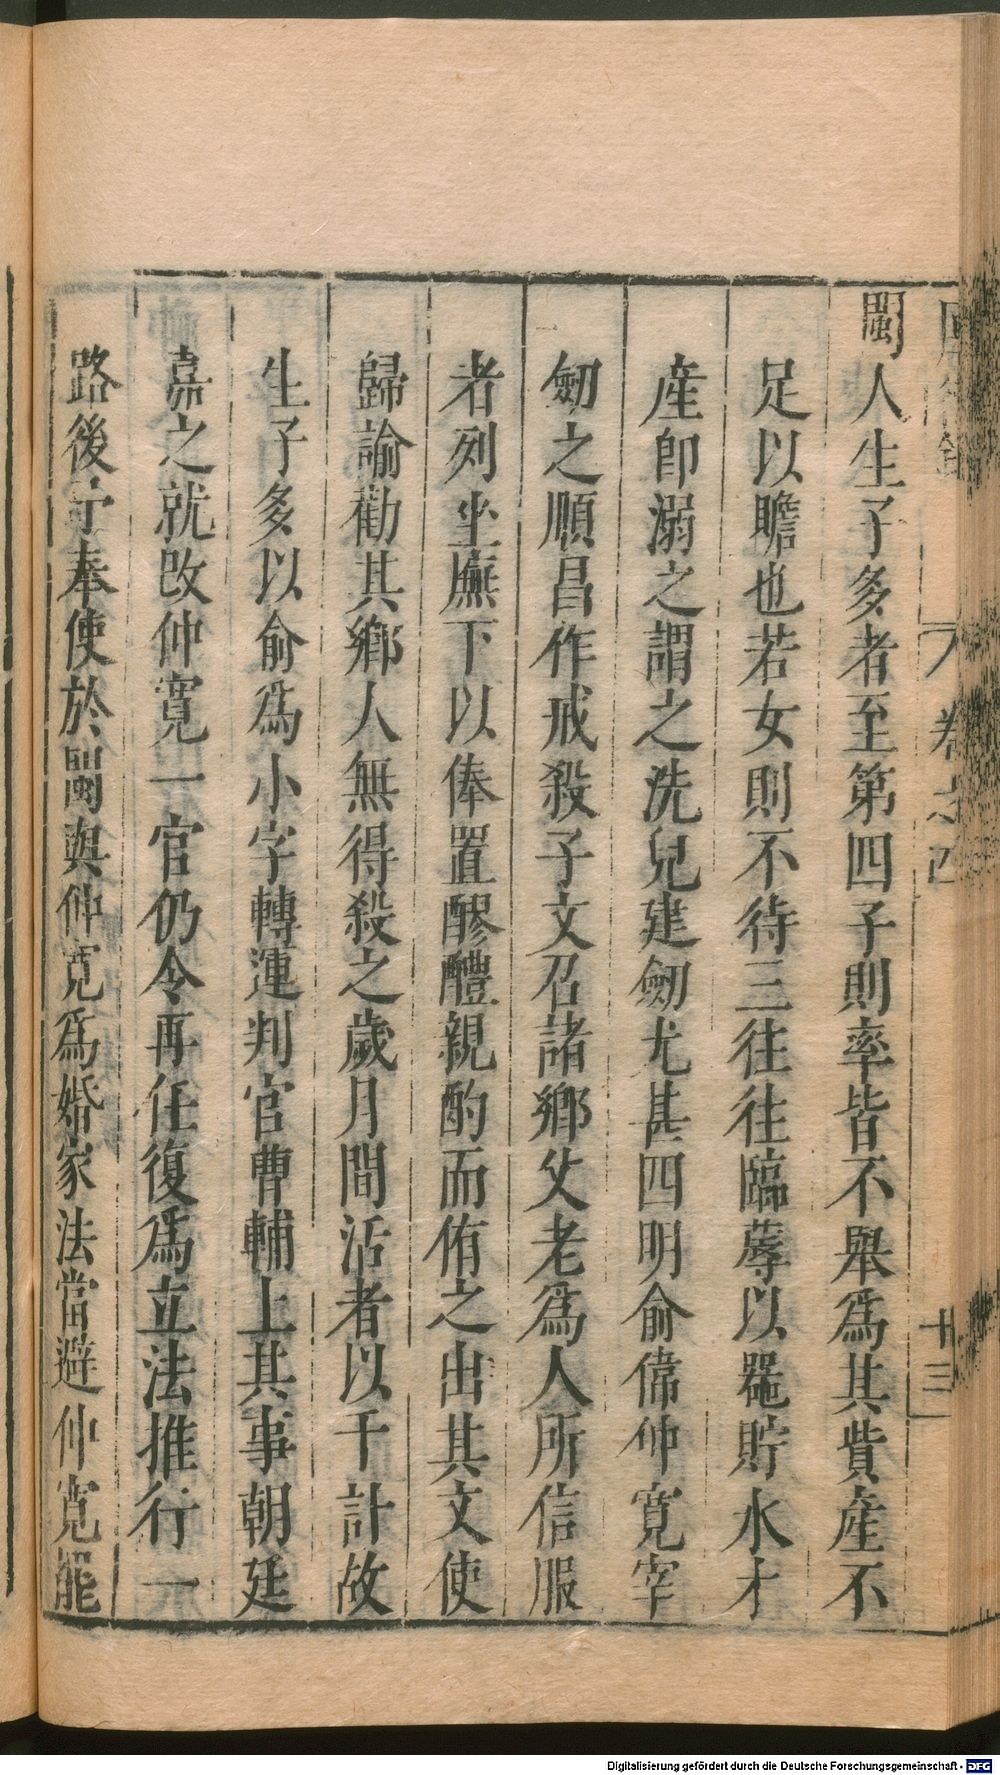 閩人生子多者至第四子則率皆不舉爲其貲產不
足以贍也若女則不待三往往臨蓐以器貯水才
產卽溺之謂之洗兒建劒尤甚四明俞偉仲寬宰
劒之順昌作戒殺子文召諸鄉父老爲人所信服
者列坐廡下以俸置醪醴親酌而侑之出其文使
歸諭勸其鄉人無得殺之歲月間活者以千計故
生子多以俞爲小字轉運判官曹輔上其事朝廷
嘉之就改仲寬一官仍令再任復爲立法推行一
路後予奉使於閩與仲寬爲婚家法當避仲寬罷
卷之四
十三
Digitalisierung gefördert durch die Deutsche Forschungsgemeinschaft - DFG